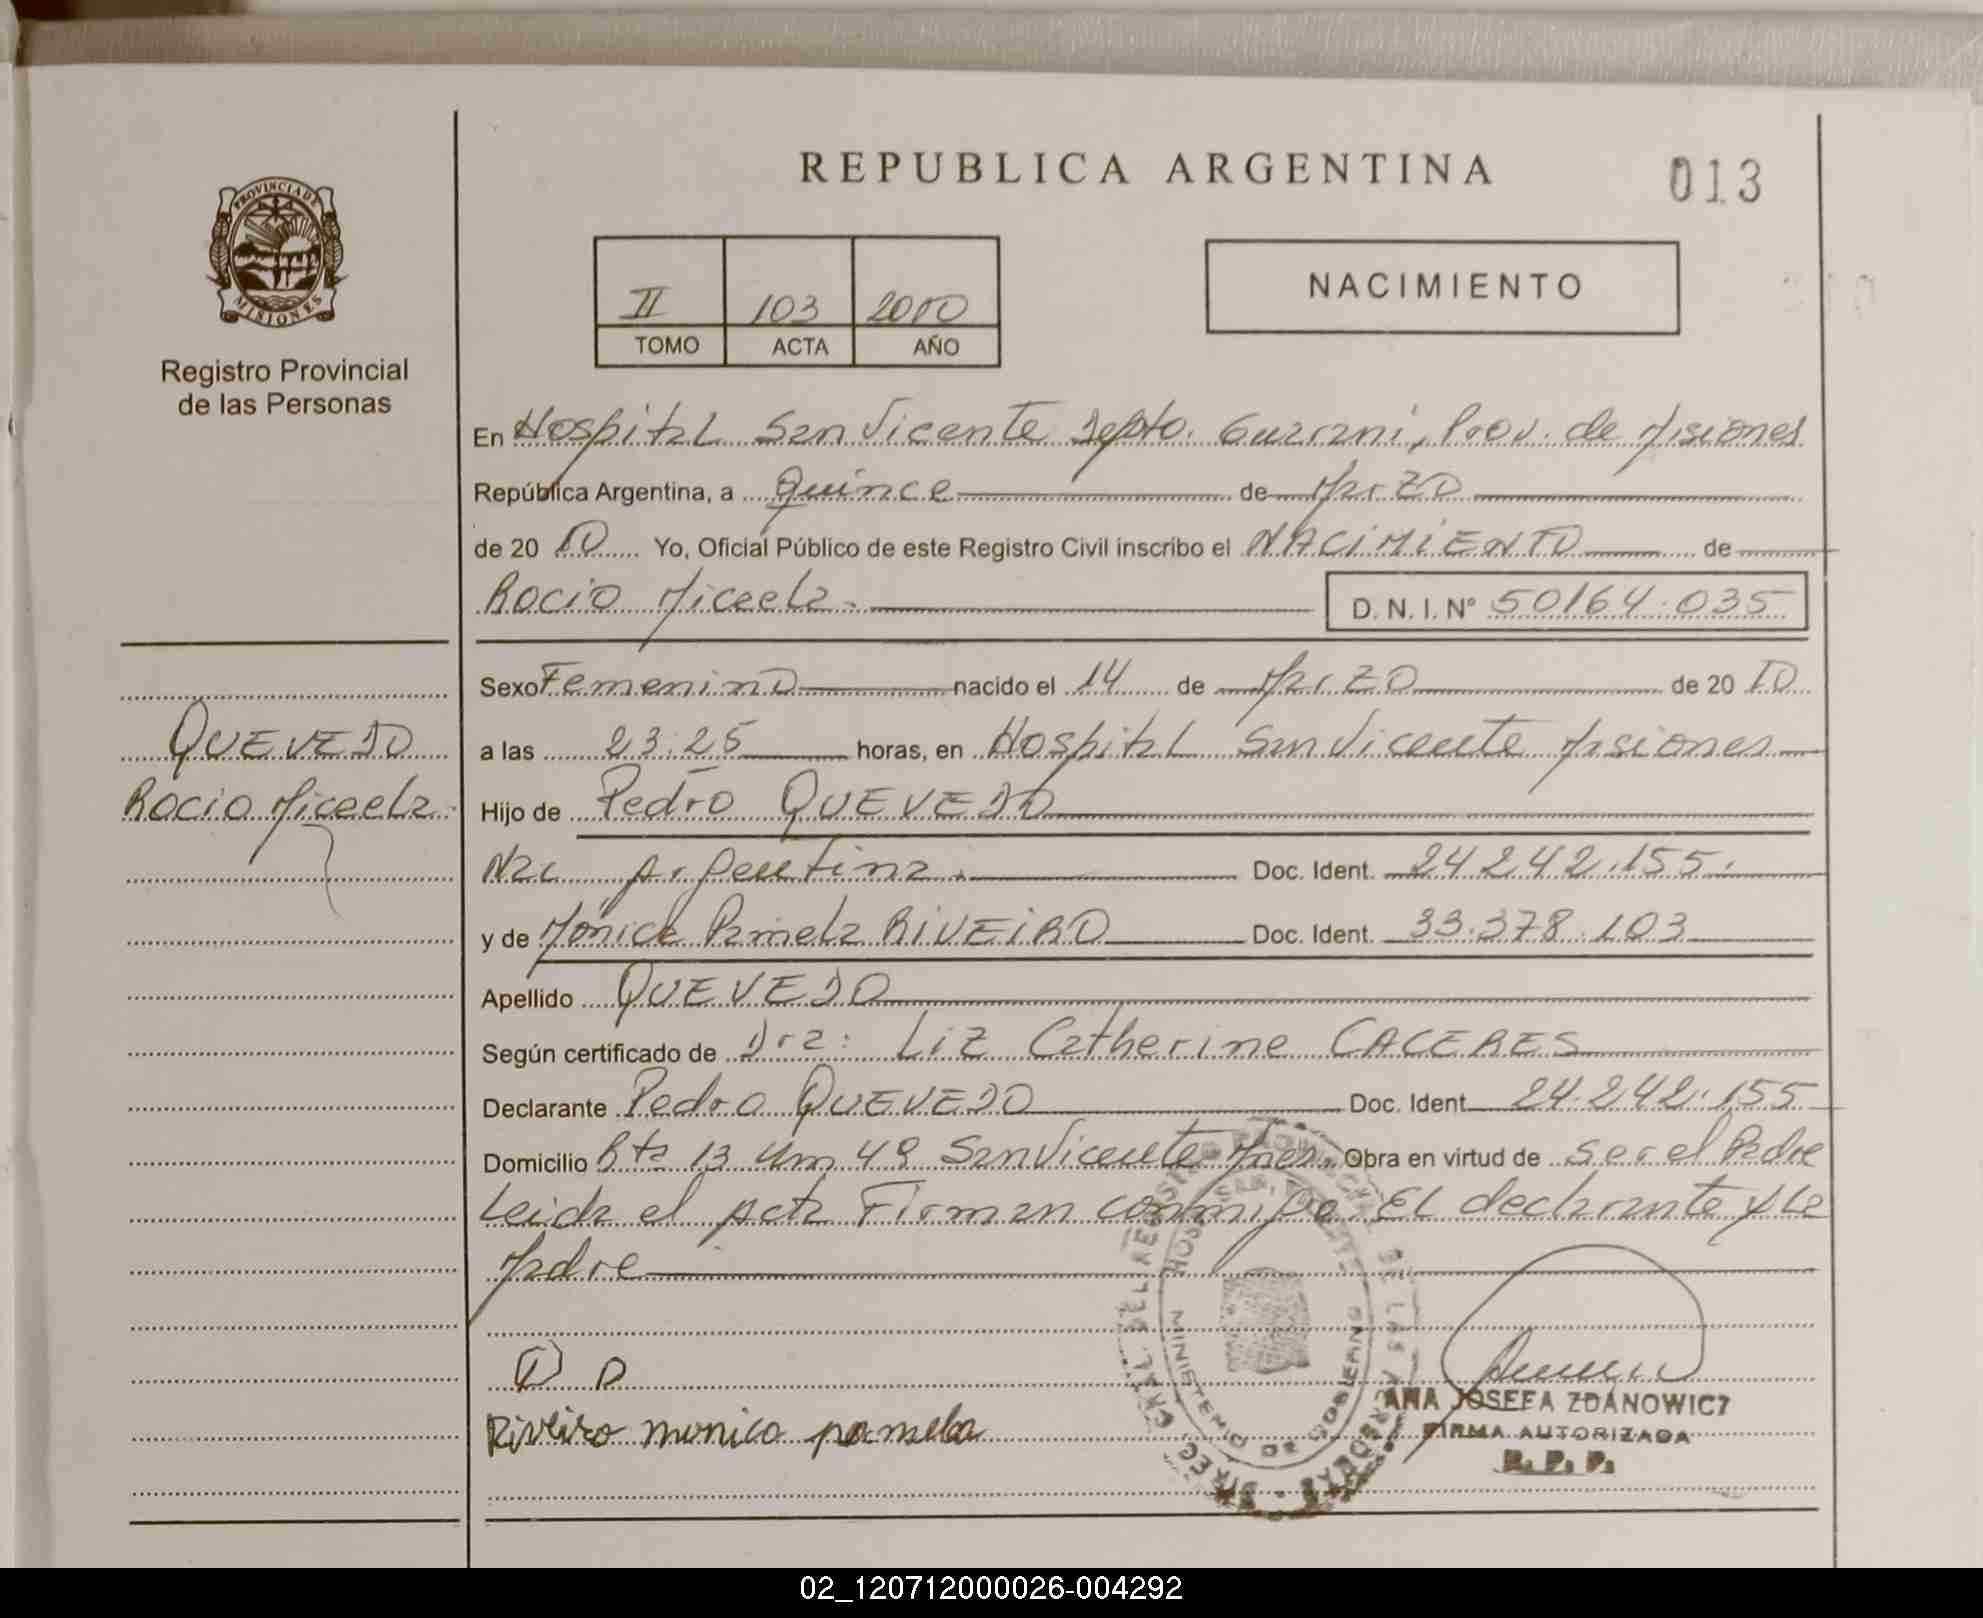 REPUBLICA ARGENTINA
013
PROVINCIA DE
MISIONES
Registro Provincial
de las Personas
II 103 2010
TOMO ACTA AÑO
NACIMIENTO
En Hospital San Vicente Depto. Guaraní, Prov. de Misiones
República Argentina, a Quince de Marzo
de 20 10 Yo, Oficial Público de este Registro Civil inscribo el NACIMIENTO de
Rocio Micaela.
D. N. I. N° 50164.035
Sexo Femenino nacido el 14 de Marzo de 20 10
QUEVEDO
a las 23:25 horas, en Hospital San Vicente Misiones
Rocio Micaela
Hijo de Pedro QUEVEDO
Nac Argentina. Doc. Ident. 24242.155.
y de Mónica Pamela RIVEIRO Doc. Ident. 33.378.103
Apellido QUEVEDO
Según certificado de Dra: Liz Catherine CACERES
Declarante Pedro QUEVEDO Doc. Ident. 24.242.155
Domicilio Rta 13 Km 49 San Vicente Mnes. Obra en virtud de ser el Padre
Leida el Acta Firman conmigo El declarante y La
Madre
Riveiro monica pamela
MINISTERIO DE GOBIERNO
ANA JOSEFA ZDANOWICZ
FIRMA AUTORIZADA
R. P. P.
02_120712000026-004292